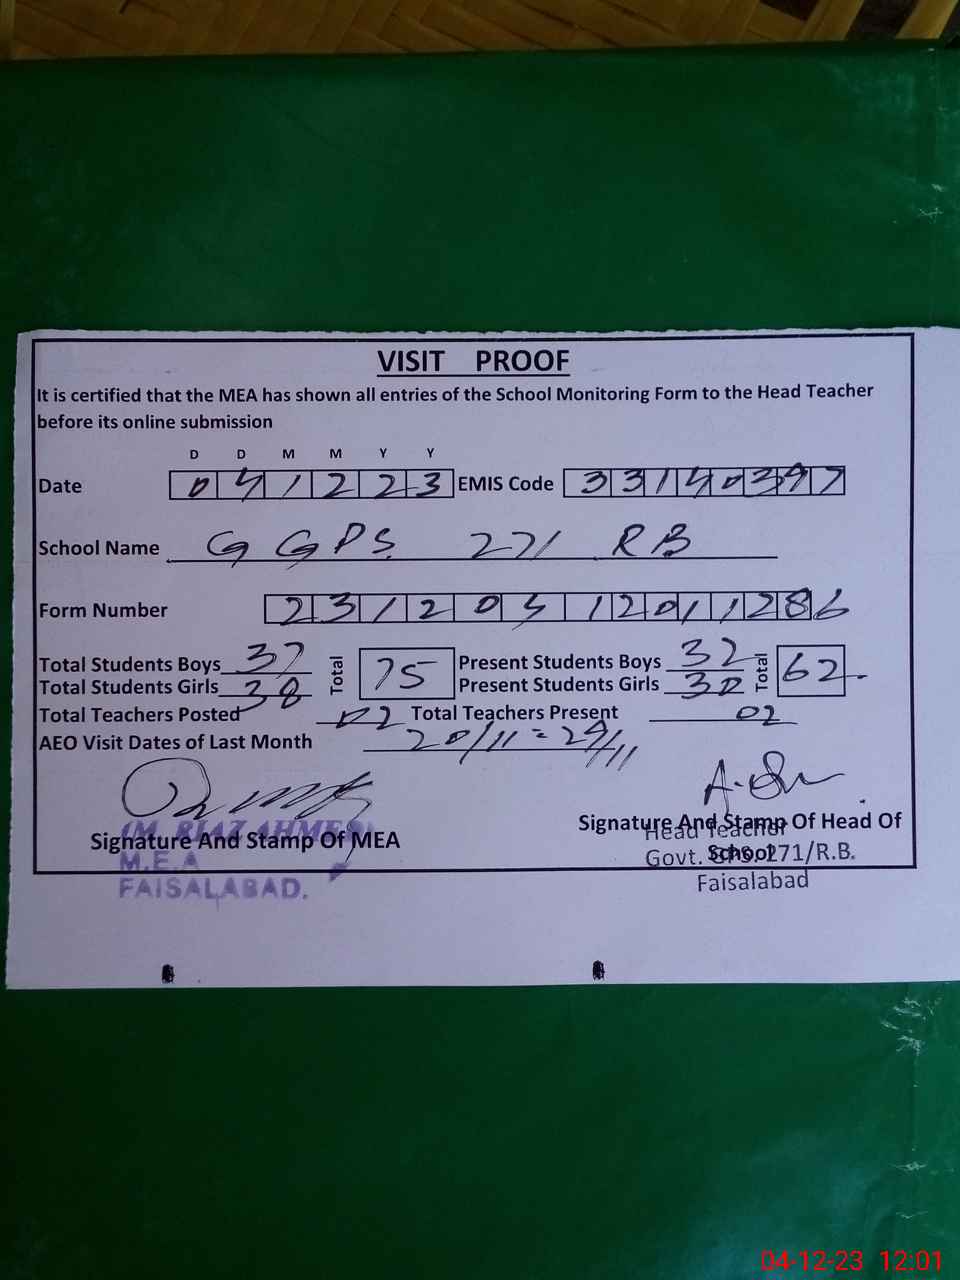 VISIT PROOF
It is certified that the MEA has shown all entries of the School Monitoring Form to the Head Teacher
before its online submission
D D M M Y Y
Date 041223 EMIS Code 33140397
School Name GGPS 271 RB
Form Number 23120412011286
Total Students Boys 37 Total 75 Present Students Boys 32 Total 62
Total Students Girls 38 Present Students Girls 30
Total Teachers Posted 02 Total Teachers Present 02
AEO Visit Dates of Last Month 20/11 = 29/11
Signature And Stamp Of MEA
(M. RIAZ AHMED)
M.E.A
FAISALABAD.
Signature And Stamp Of Head Of
School
Head Teacher
Govt. 271/R.B.
Faisalabad
04-12-23 12:01